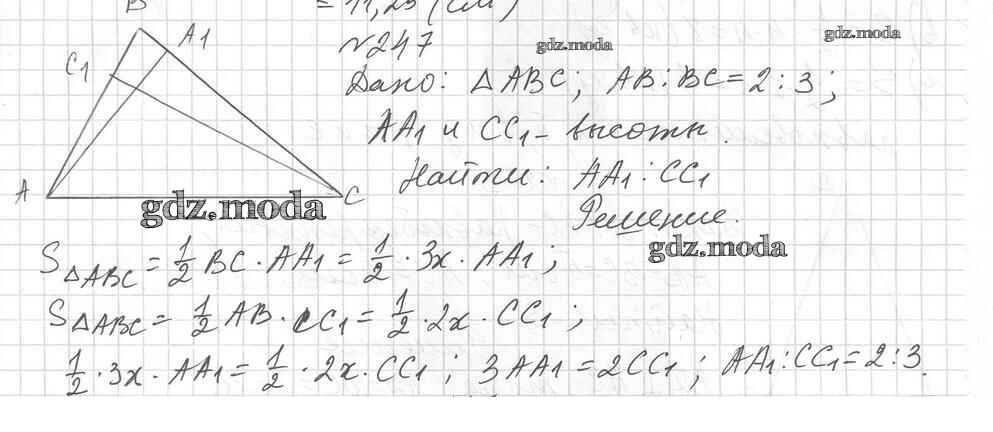 = 11,25 (см)
B
A1
C1
A
C
№247
gdz.moda
gdz.moda
Дано: △ABC; AB:BC=2:3;
AA1 и CC1 - высоты.
Найти: AA1:CC1
gdz.moda
Решение.
gdz.moda
S△ABC = 1/2 BC · AA1 = 1/2 · 3x · AA1;
S△ABC = 1/2 AB · CC1 = 1/2 · 2x · CC1;
1/2 · 3x · AA1 = 1/2 · 2x · CC1; 3AA1 = 2CC1; AA1:CC1=2:3.